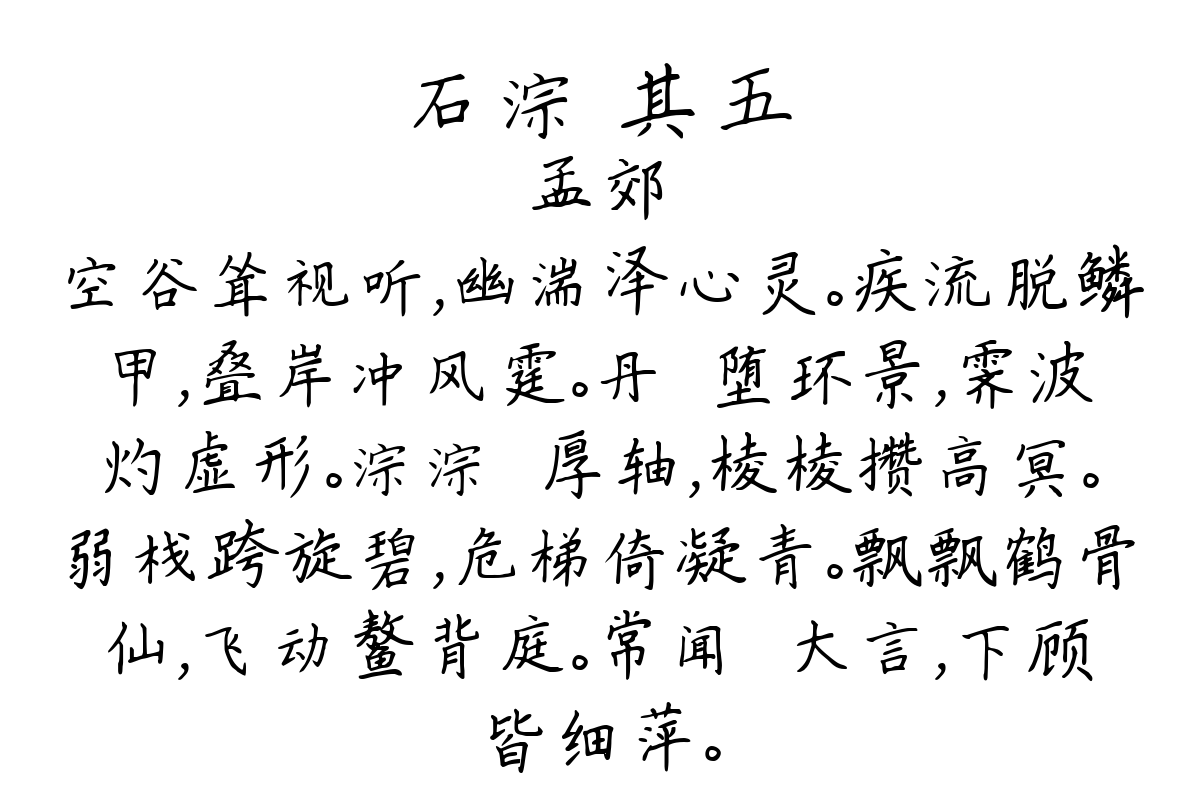 石淙 其五
孟郊
空谷耸视听,幽湍泽心灵。疾流脱鳞
甲,叠岸冲风霆。丹 堕环景,霁波
灼虚形。淙淙 厚轴,棱棱攒高冥。
弱栈跨旋碧,危梯倚凝青。飘飘鹤骨
仙,飞动鳌背庭。常闻 大言,下顾
皆细萍。